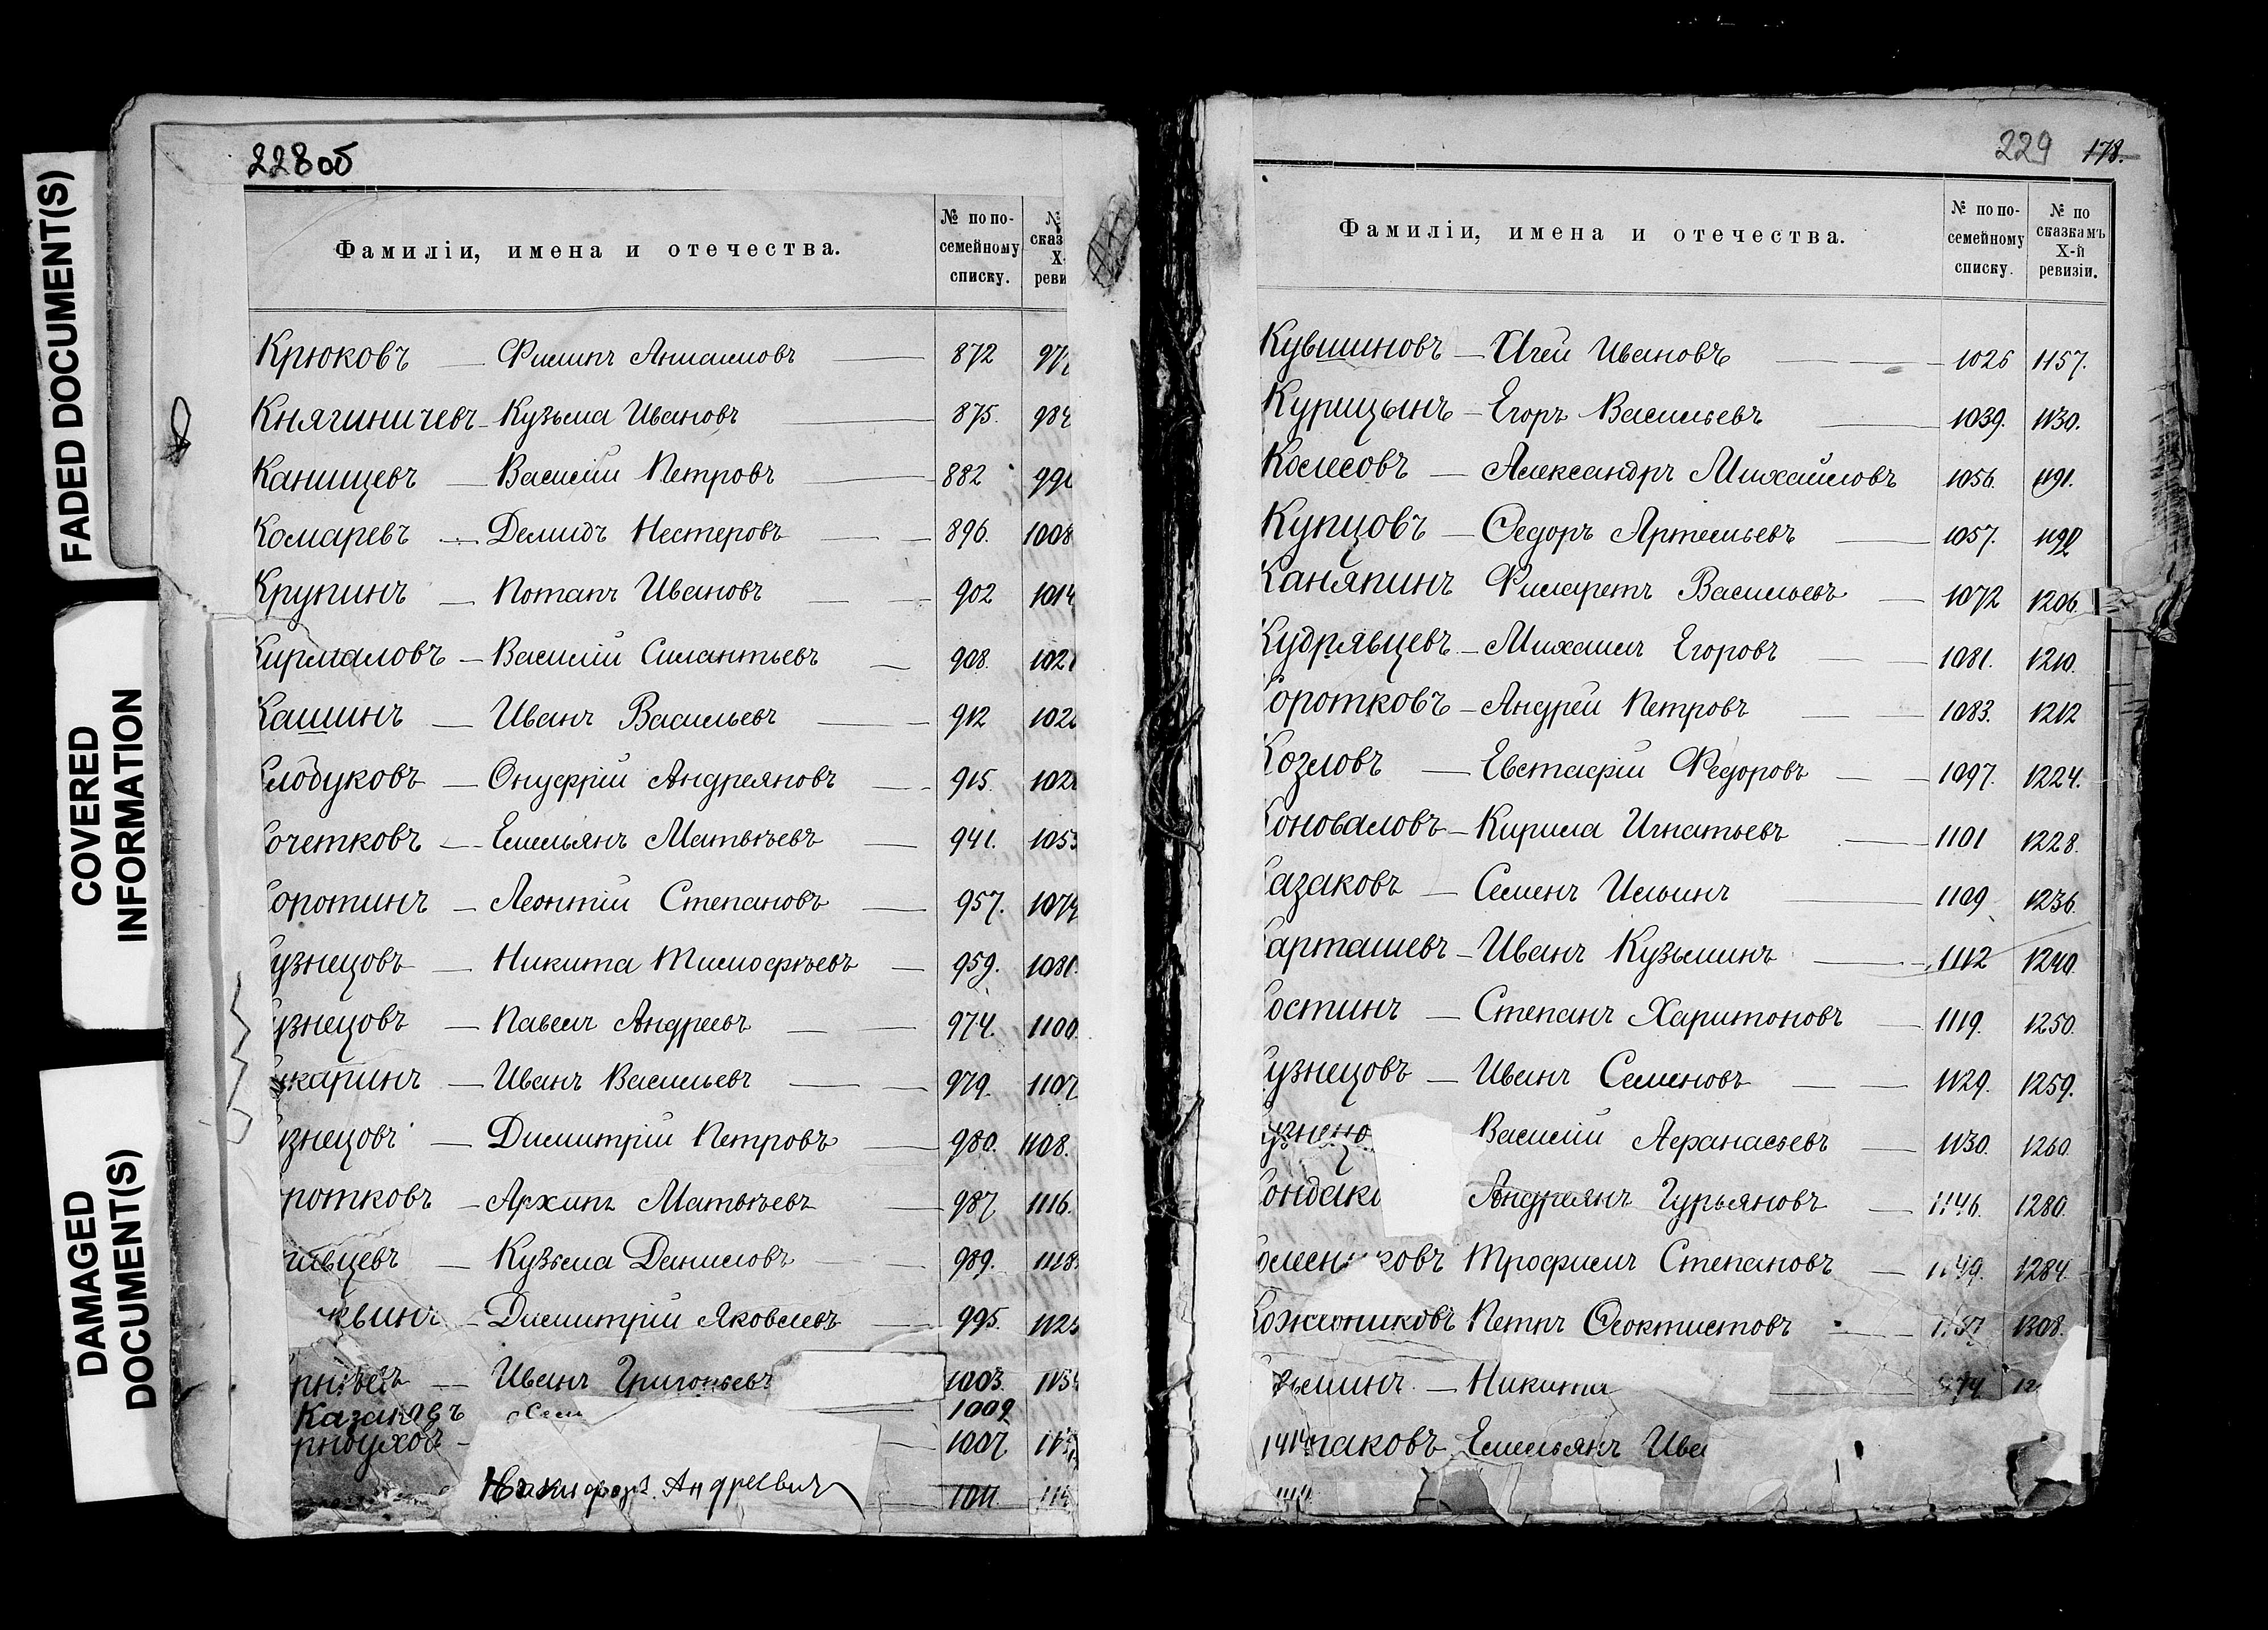 FADED DOCUMENT(S)
COVERED
INFORMATION
DAMAGED
DOCUMENT(S)
228об
Фамиліи, имена и отечества.
№ по по-
семейному
списку.
№
сказ
X-
реви
Крюковъ — Филипъ Анисимовъ — 872 97
Княгиничевъ — Кузьма Ивановъ — 875. 984
Канищевъ — Василій Петровъ — 882 99
Комаревъ — Демидъ Нестеровъ — 896. 1008
Крупинъ — Потапъ Ивановъ — 902 1014
Кирмаловъ — Василій Силантьевъ — 908. 102
Кашинъ — Иванъ Васильевъ — 912 102
лобуковъ — Онуфрій Андреяновъ — 915. 102
очетковъ — Емельянъ Матвѣевъ — 941. 1053
оротинъ — Леонтій Степановъ — 957. 1074
узнецовъ — Никита Тимофѣевъ — 959. 1081
узнецовъ — Павелъ Андреевъ — 974. 1100
каринъ — Иванъ Васильевъ — 979. 1107
знецовъ — Димитрій Петровъ — 980. 1108.
ротковъ — Архипъ Матвѣевъ — 987 1116.
ивцевъ — Кузьма Даниловъ — 989. 1118
квинъ — Димитрій Яковлевъ — 995. 1125
Иванъ Григорьевъ 1003. 115
Казаковъ 1009
рноуховъ — 1007
Никифоръ Андреевичъ 1011. 11
229 178.
Фамиліи, имена и отечества.
№ по по-
семейному
списку.
№ по
сказкамъ
X-й
ревизіи.
Кувшиновъ — Агей Ивановъ — 1026 1157.
Курицынъ — Егоръ Васильевъ — 1039. 1130.
Колесовъ — Александръ Михайловъ 1056. 1191.
Купцовъ — Ѳедоръ Артемьевъ — 1057. 1192
Каняпинъ Филаретъ Васильевъ — 1072 1206.
Кудрявцевъ — Михаилъ Егоровъ — 1081. 1210.
оротковъ — Андрей Петровъ — 1083. 1212
Козловъ — Евстафій Федоровъ — 1097. 1224.
Коноваловъ — Кирила Игнатьевъ — 1101 1228.
азаковъ — Семенъ Ильинъ — 1109 1236.
арташевъ — Иванъ Кузьминъ — 1112 1240.
остинъ — Степанъ Харитоновъ — 1119. 1250.
узнецовъ — Иванъ Семеновъ — 1129. 1259.
узнецо Василій Афанасьевъ — 1130. 1260.
ондако Андреянъ Гурьяновъ — 1146. 1280.
олесниковъ Трофимъ Степановъ — 1149. 1284.
Кожевниковъ Петръ Ѳеоктистовъ — 1308.
ьминъ — Никита — 12
аковъ Емельянъ Ива